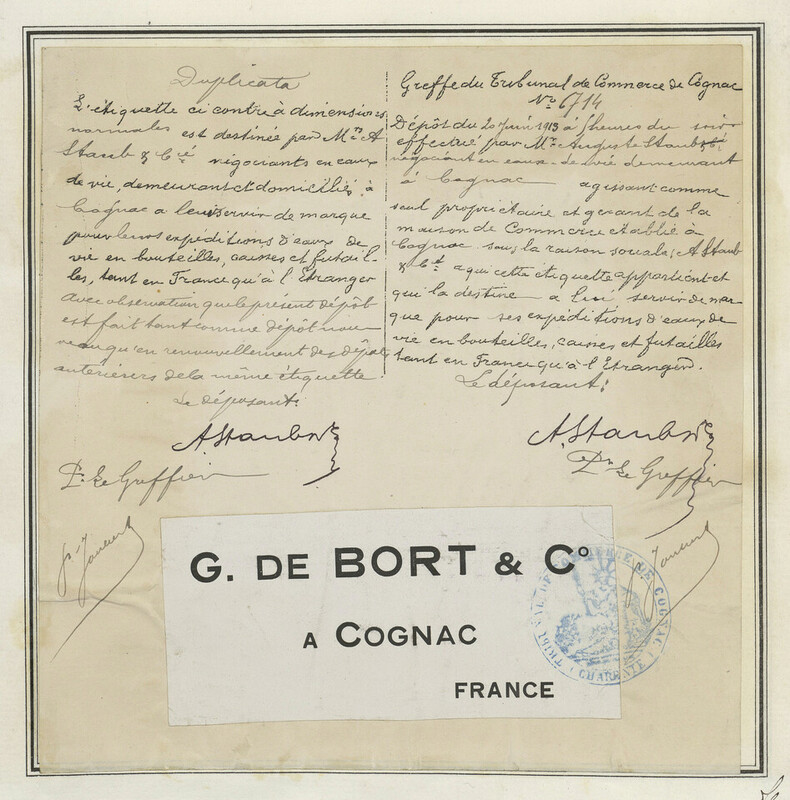 Duplicata
L'étiquette ci contre à dimensions
normales est destinée par Mrs A
Staub & Cie négociants en eaux
de vie, demeurant et domiciliés à
Cognac a leur servir de marque
pour leurs expéditions d'eaux de
vie en bouteilles, caisses et futail-
les, tant en France qu'à l'Etranger
avec observation que le présent dépôt
est fait tant comme dépôt nou
veau qu'en renouvellement des dépôts
antérieurs de la même étiquette
Le déposant:
A. Staub
Pr Le Greffier
Greffe du Tribunal de Commerce de Cognac
No 6714
Dépôt du 20 Juin 1913 à 5 heures du soir
effectué par Mr Auguste Staub
négociant en eaux-de-vie demeurant
à Cognac agissant comme
seul propriétaire et gérant de la
maison de Commerce établie à
Cognac sous la raison sociale: A Staub
& Cie a qui cette étiquette appartient et
qui la destine a lui servir de mar
que pour ses expéditions d'eaux de
vie en bouteilles, caisses et futailles
tant en France qu'à l'Etranger.
Le déposant:
A. Staub
Pr Le Greffier
G. DE BORT & Co
A COGNAC
FRANCE
TRIBUNAL DE COMMERCE DE COGNAC
CHARENTE